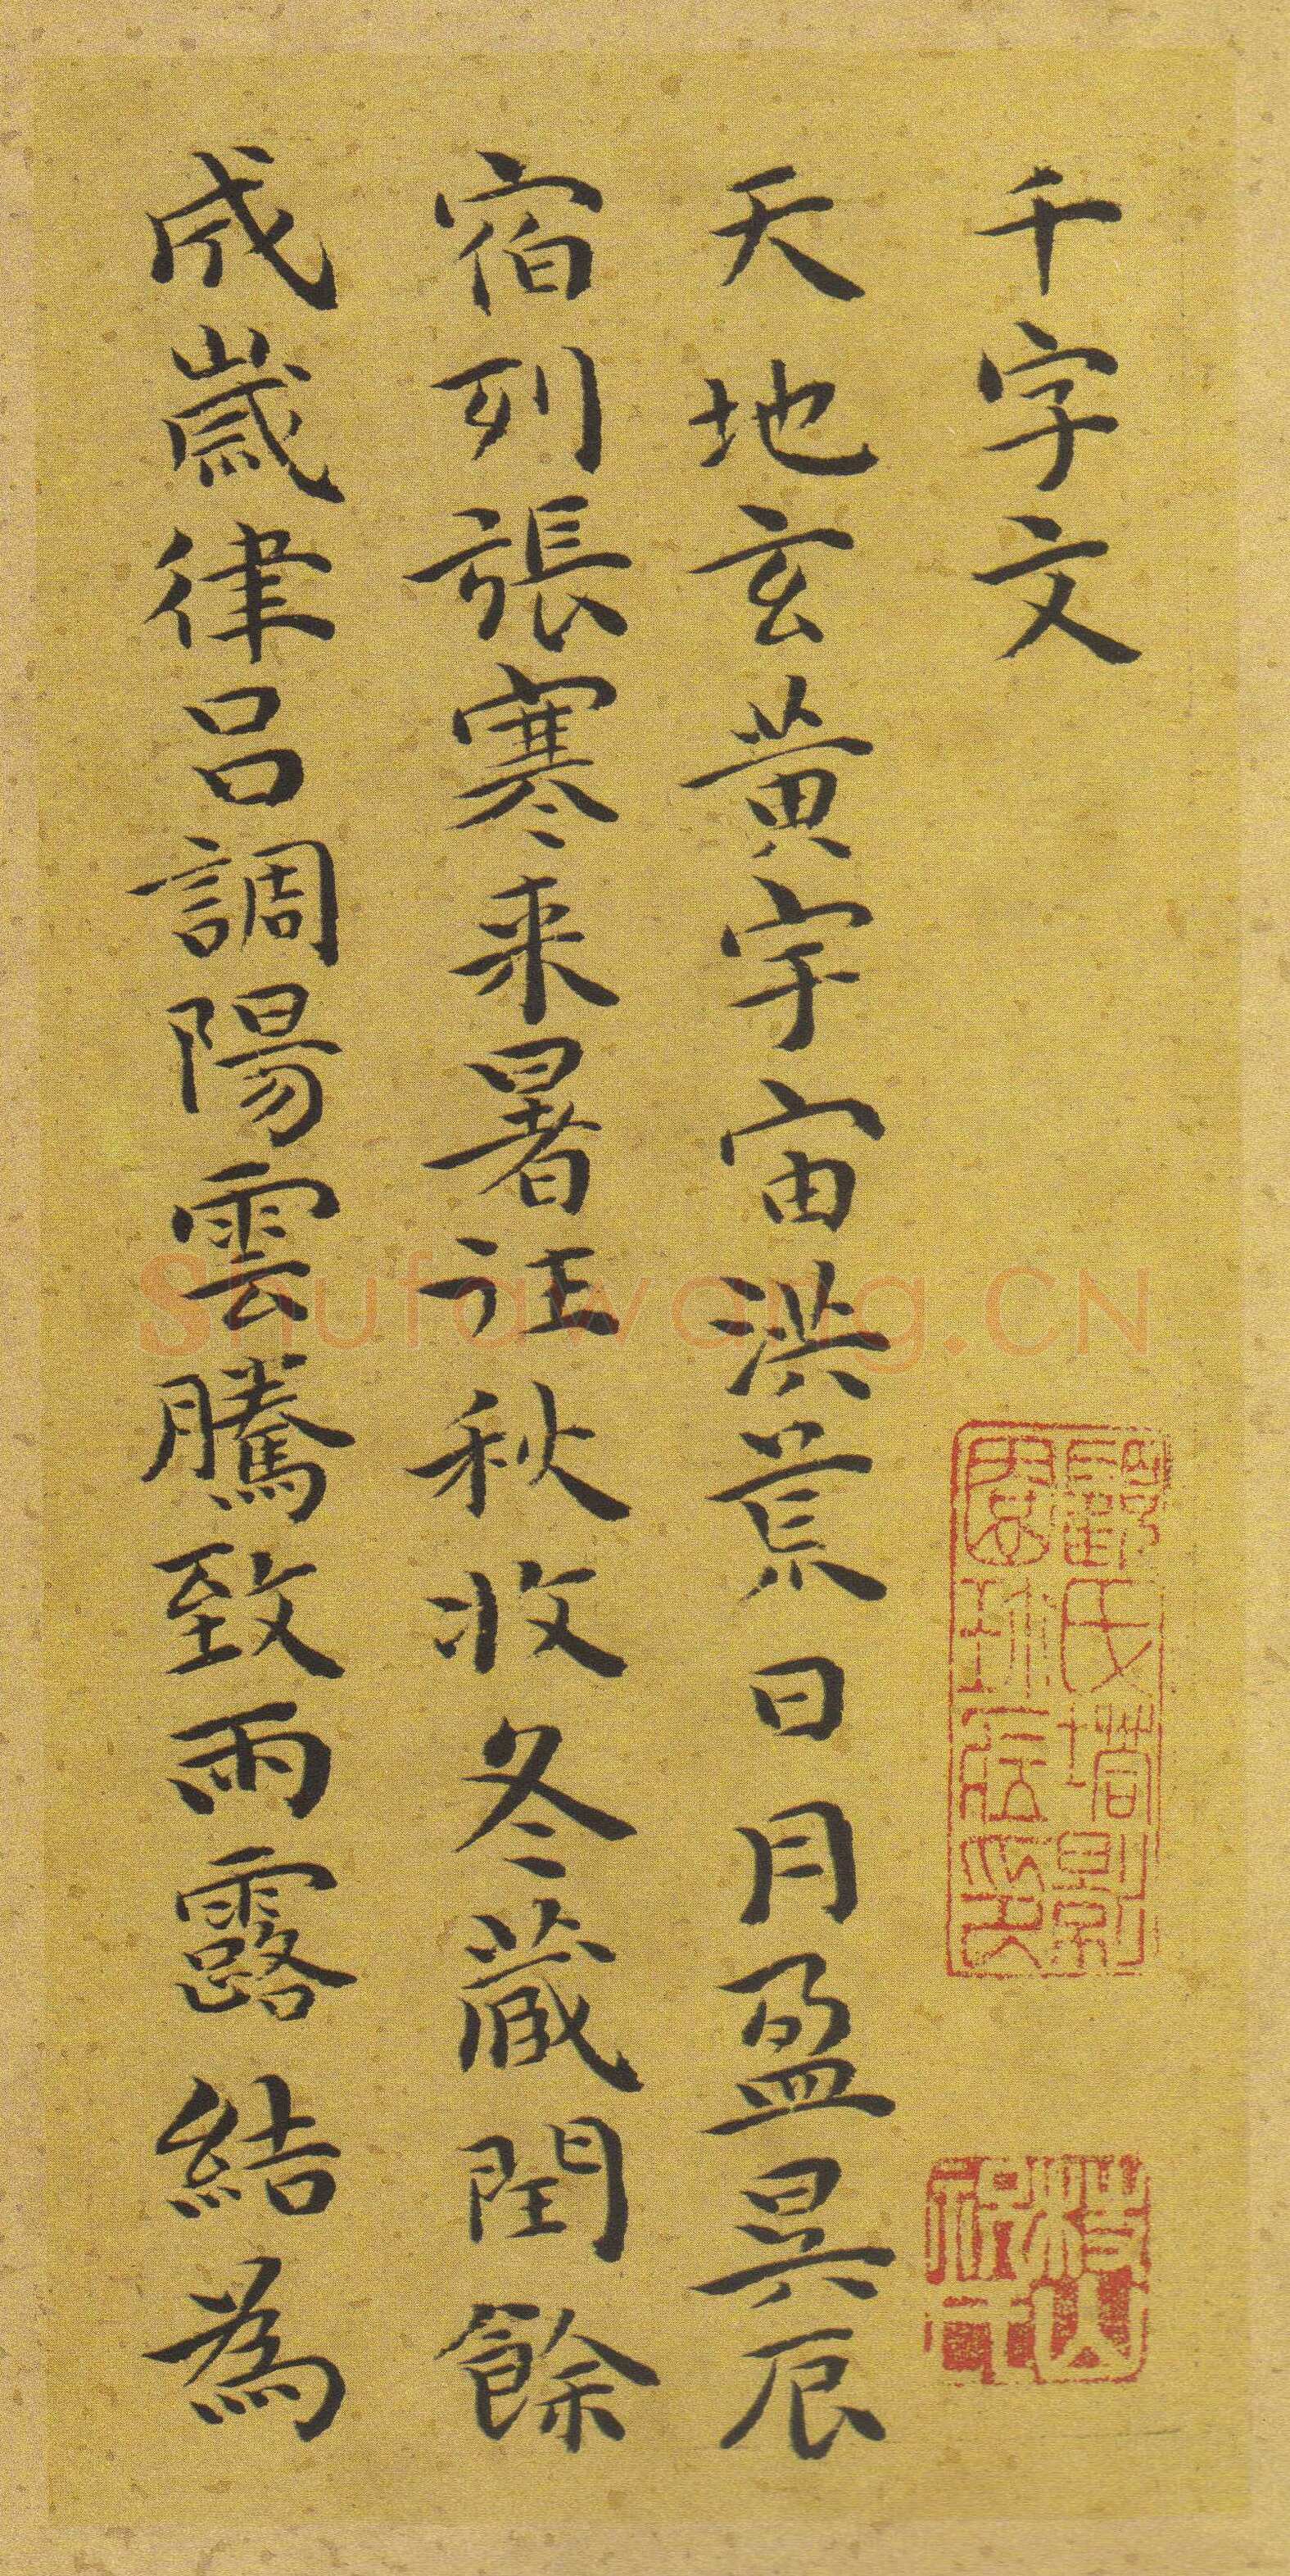 千字文
天地玄黃宇宙洪荒日月盈昃辰
宿列張寒来暑往秋收冬蔵閏餘
成歲律呂調陽雲騰致雨露結為
Shufawang.CN